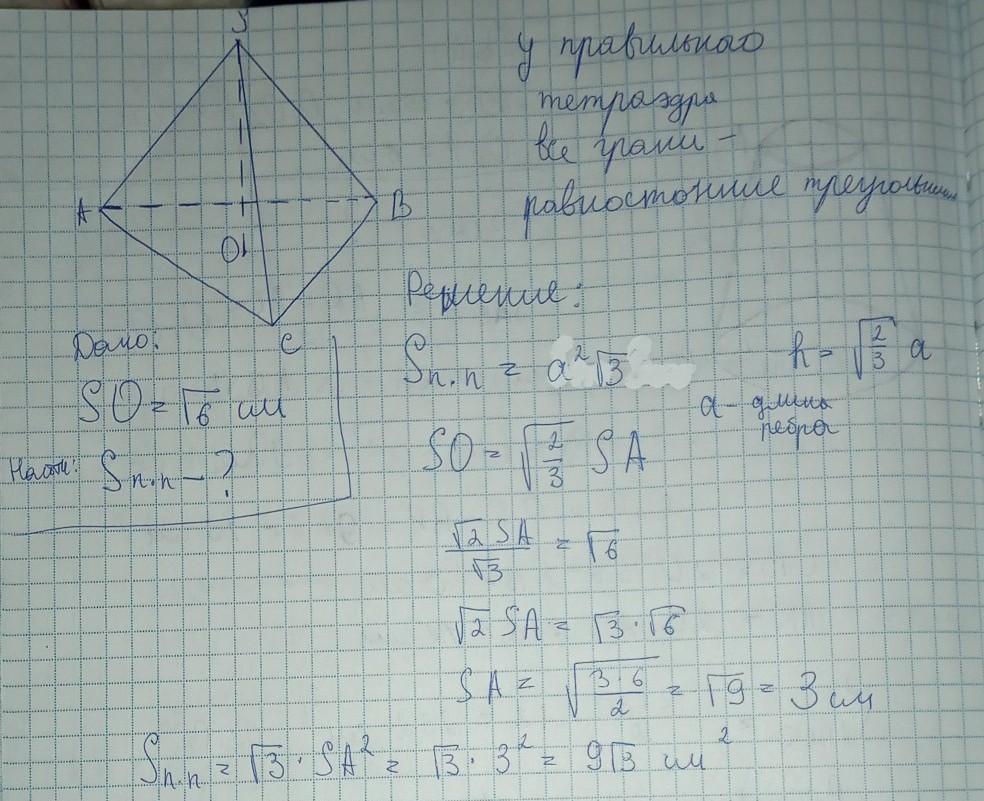 S
У правильного
тетраэдра
все грани -
равностонние треугольники
A
B
O
C
Решение:
Дано:
SO = √6 см
Найти: Sп.п - ?
Sп.п = a²√3
h = √(2/3) a
a - длина
ребра
SO = √(2/3) SA
√2 SA / √3 = √6
√2 SA = √3 · √6
SA = √(3·6/2) = √9 = 3 см
Sп.п = √3 · SA² = √3 · 3² = 9√3 см²